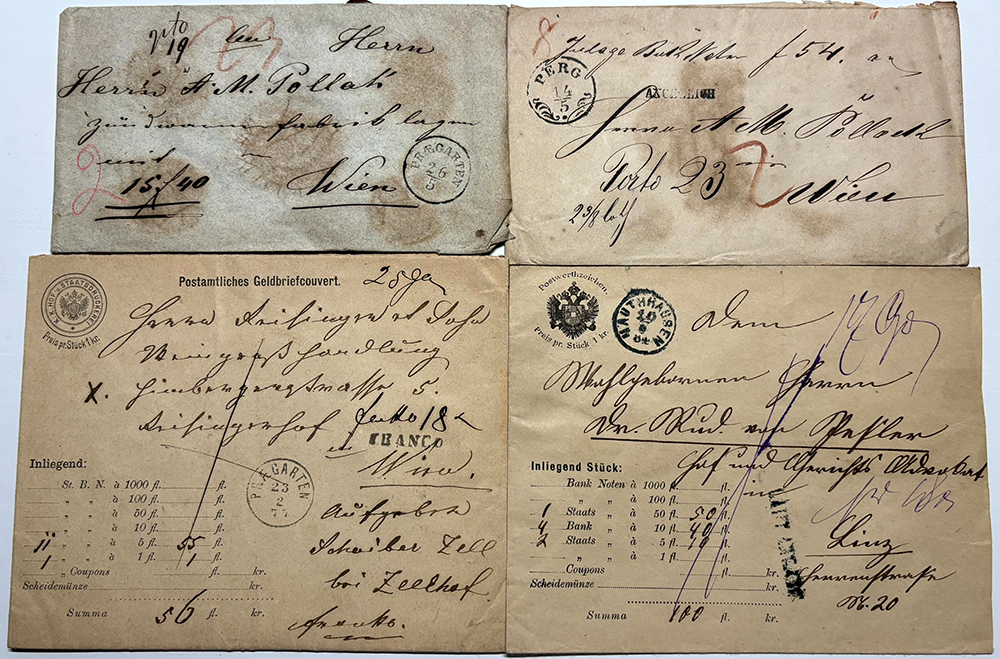 An
Herrn
19
Herrn A M. Pollak
Zündwaaren fabrik
mit
2
15 f 40
Wien
PRÆGARTEN
26
f 54.
PERG
14
5
ANGEBLICH
Herrn A M. Pollack
Porto 23
Wien
2 3/8 loth
K.K. HOF- U. STAATSDRUCKEREI
Preis pr. Stück 1 kr.
Postamtliches Geldbriefcouvert.
Herrn Reisinger et Sohn
Weingroßhandlung
Himbergerstrasse 5.
X.
Reisingerhof
18
FRANCO
in
Wien.
Inliegend:
St. B. N. à 1000 fl. fl.
„ „ à 100 fl. fl.
„ „ à 50 fl. fl.
„ „ à 10 fl. fl.
11 „ „ à 5 fl. 55 fl.
1 „ „ à 1 fl. 1 fl.
„ Coupons fl. kr.
Scheidemünze fl. kr.
Summa 56 fl. kr.
PRÆGARTEN
23
2
77
Aufgeber
Scheiber Zell
bei Zellhof.
franko.
Postwerthzeichen
Preis pr. Stück 1 kr.
MAUTHHAUSEN
10
84
Dem
Wohlgebornen Herrn
Dr. Rud. von
Hof und Gerichts Advokat
in
Linz
Herrenstraße
N. 20
Inliegend Stück:
Bank Noten à 1000 fl. fl.
„ „ à 100 fl. fl.
1 Staats „ à 50 fl. 50 fl.
4 Bank „ à 10 fl. 40 fl.
2 Staats „ à 5 fl. 10 fl.
„ „ à 1 fl. fl.
Coupons fl. kr.
Scheidemünze fl. kr.
Summa 100 fl. kr.